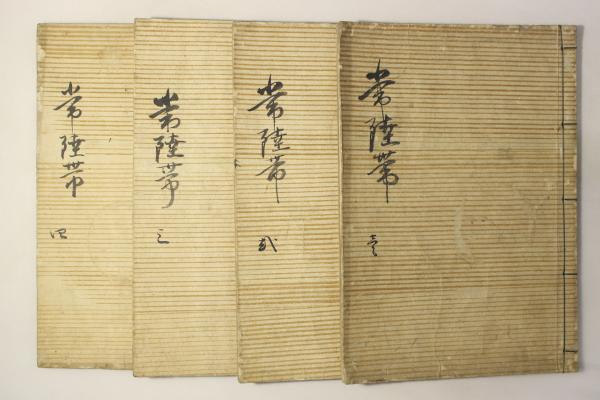 常陸帯
壱
常陸帯
弐
常陸帯
三
常陸帯
四